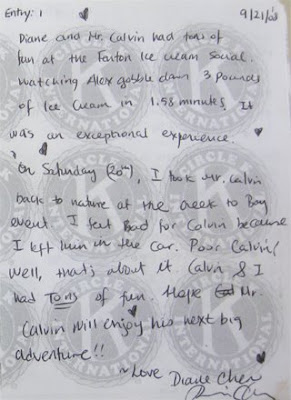 Entry: 1
9/21/08
Diane and Mr. Calvin had tons of
fun at the Fenton Ice cream Social.
Watching Alex gobble down 3 pounds
of Ice Cream in 1.58 minutes, It
was an exceptional experience.
On Saturday (20th), I took Mr. Calvin
back to nature at the creek to Bay
event. I felt Bad for Calvin because
I left him in the car. Poor Calvin!
Well, that's about it. Calvin & I
had Tons of fun. Hope Mr.
Calvin will enjoy his next big
adventure!!
~Love Diane Chen
CIRCLE K
INTERNATIONAL